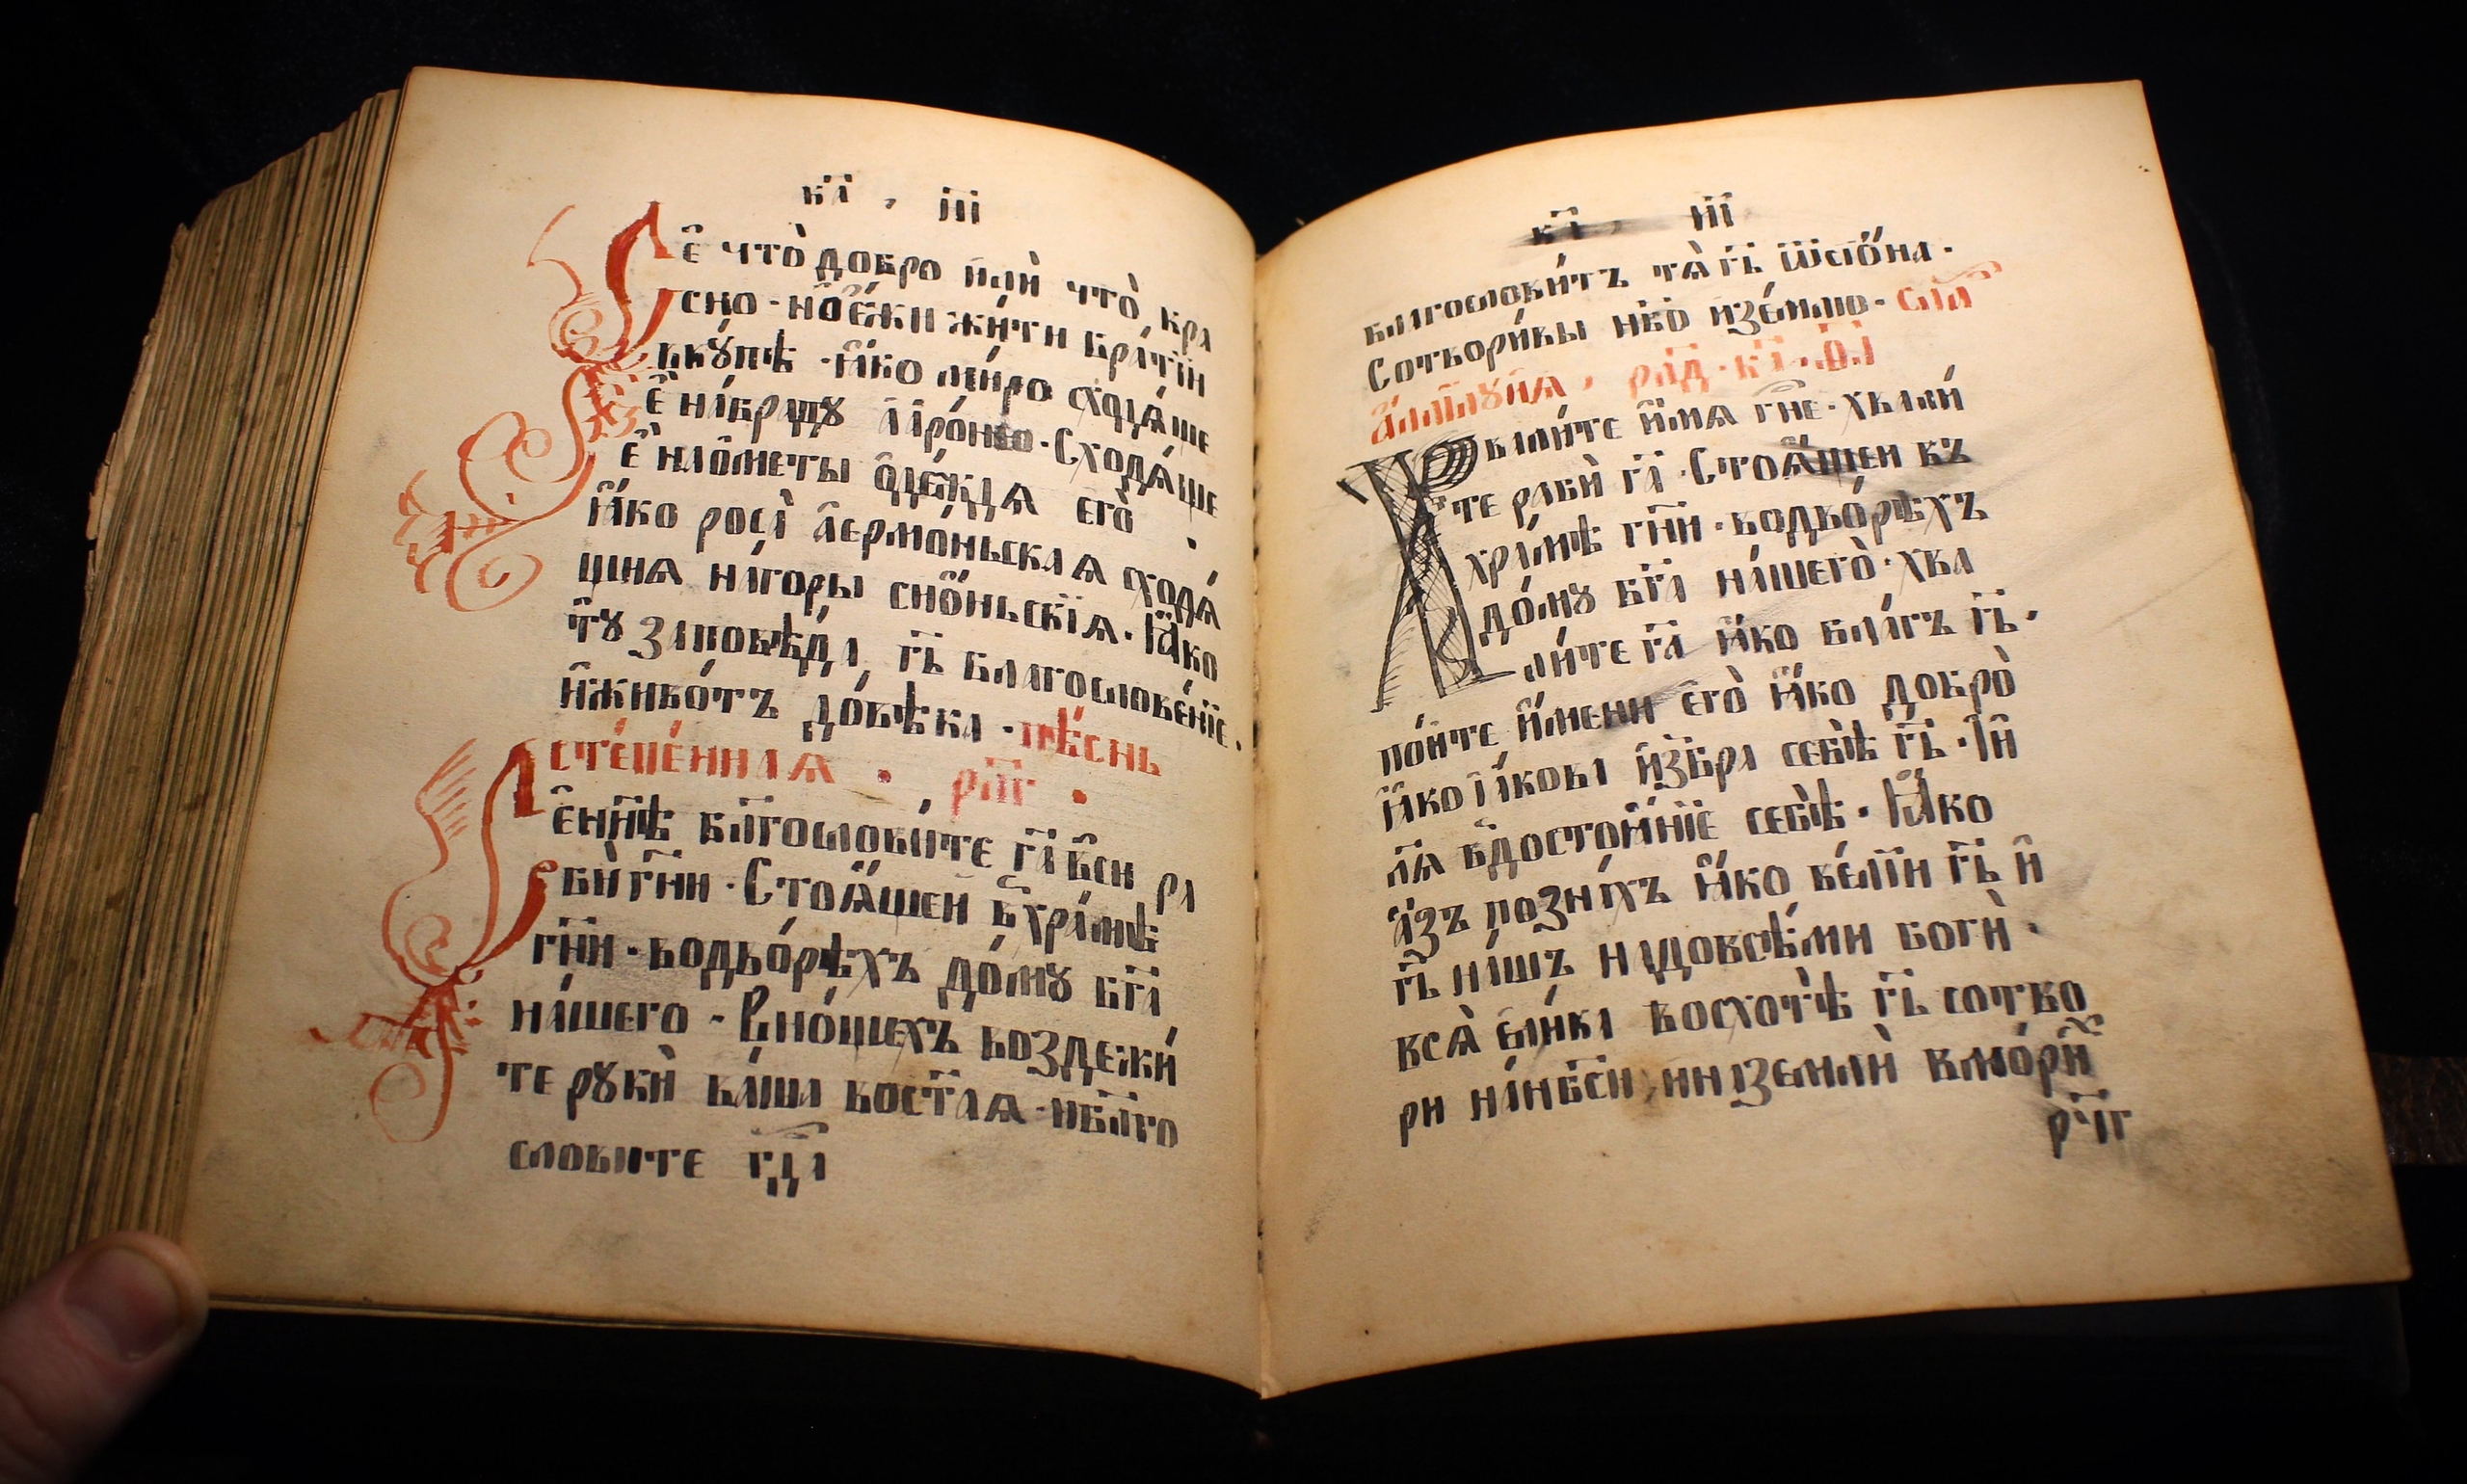 к҃а , п҃і
Се̂ что̀ добро и҆лѝ что̀ , кра
сно · но̑е҆́жи жи́ти бра́тїи
вкꙋ́пѣ · ꙗ҆́ко ми́ро сходѧ́ще
е҆ на́браду аарѡ́ню · Сходѧ́ще
е҆ наѡ҆́меты ѻ҆де́ждѧ его̀ .
ꙗ҆́ко роса̀ а҆ермо́ньскаѧ сходѧ́
щиѧ на́горы сиѡ́ньскїѧ · Ꙗ҆́ко
тꙋ̀ заповѣ́да , г҃ь благослове́нїе .
и҆живо́тъ до́вѣка · пѣ́снь
степе́ннаѧ . рл҃г .
Се̂ нн҃ѣ , бл҃гослови́те г҃а в҆си ра
бѝ гн҃и · Стоѧ́щеи в҆хра́мѣ
гн҃и · водво́рѣхъ до́мꙋ бг҃а ,
на́шего · В҆но́щехъ воздежи́
те рꙋкѝ ва́ша вост҃аѧ · ибл҃го
словите гд҃а
к҃а , п҃і
благослови́тъ тѧ̀ г҃ь ѿсїѡ́на ·
Сотвори́вы нб҃о и҆зе́млю · сла
а҆ллилꙋиѧ , рл҃д · к҃а · ѳ҃і
Хвали́те и҆́мѧ гн҃е · хвали́
те рабѝ г҃а · Стоѧ́щеи въ
хра́мѣ гн҃и · водво́рѣхъ
до́мꙋ бг҃а на́шего̀ · хва
ли́те г҃а ꙗ҆́ко бла́гъ г҃ь ·
по́ите и҆́мени его̀ ꙗ҆́ко добро̀
ꙗ҆́ко іа́кова и҆збра себѣ̀ г҃ь · Іи҃
л҃ѧ в҆достоѧ́нїе себѣ̀ · Ꙗ҆́ко
а҆́зъ позна́хъ ꙗ҆́ко ве́лїи г҃ь и҆
г҃ь на́шъ надовсѣ́ми богѝ ·
всѧ̀ ели́ка восхотѣ̀ г҃ь сотво
ри на́нб҃си , ина землѝ вмо́рѝ
рч҃г